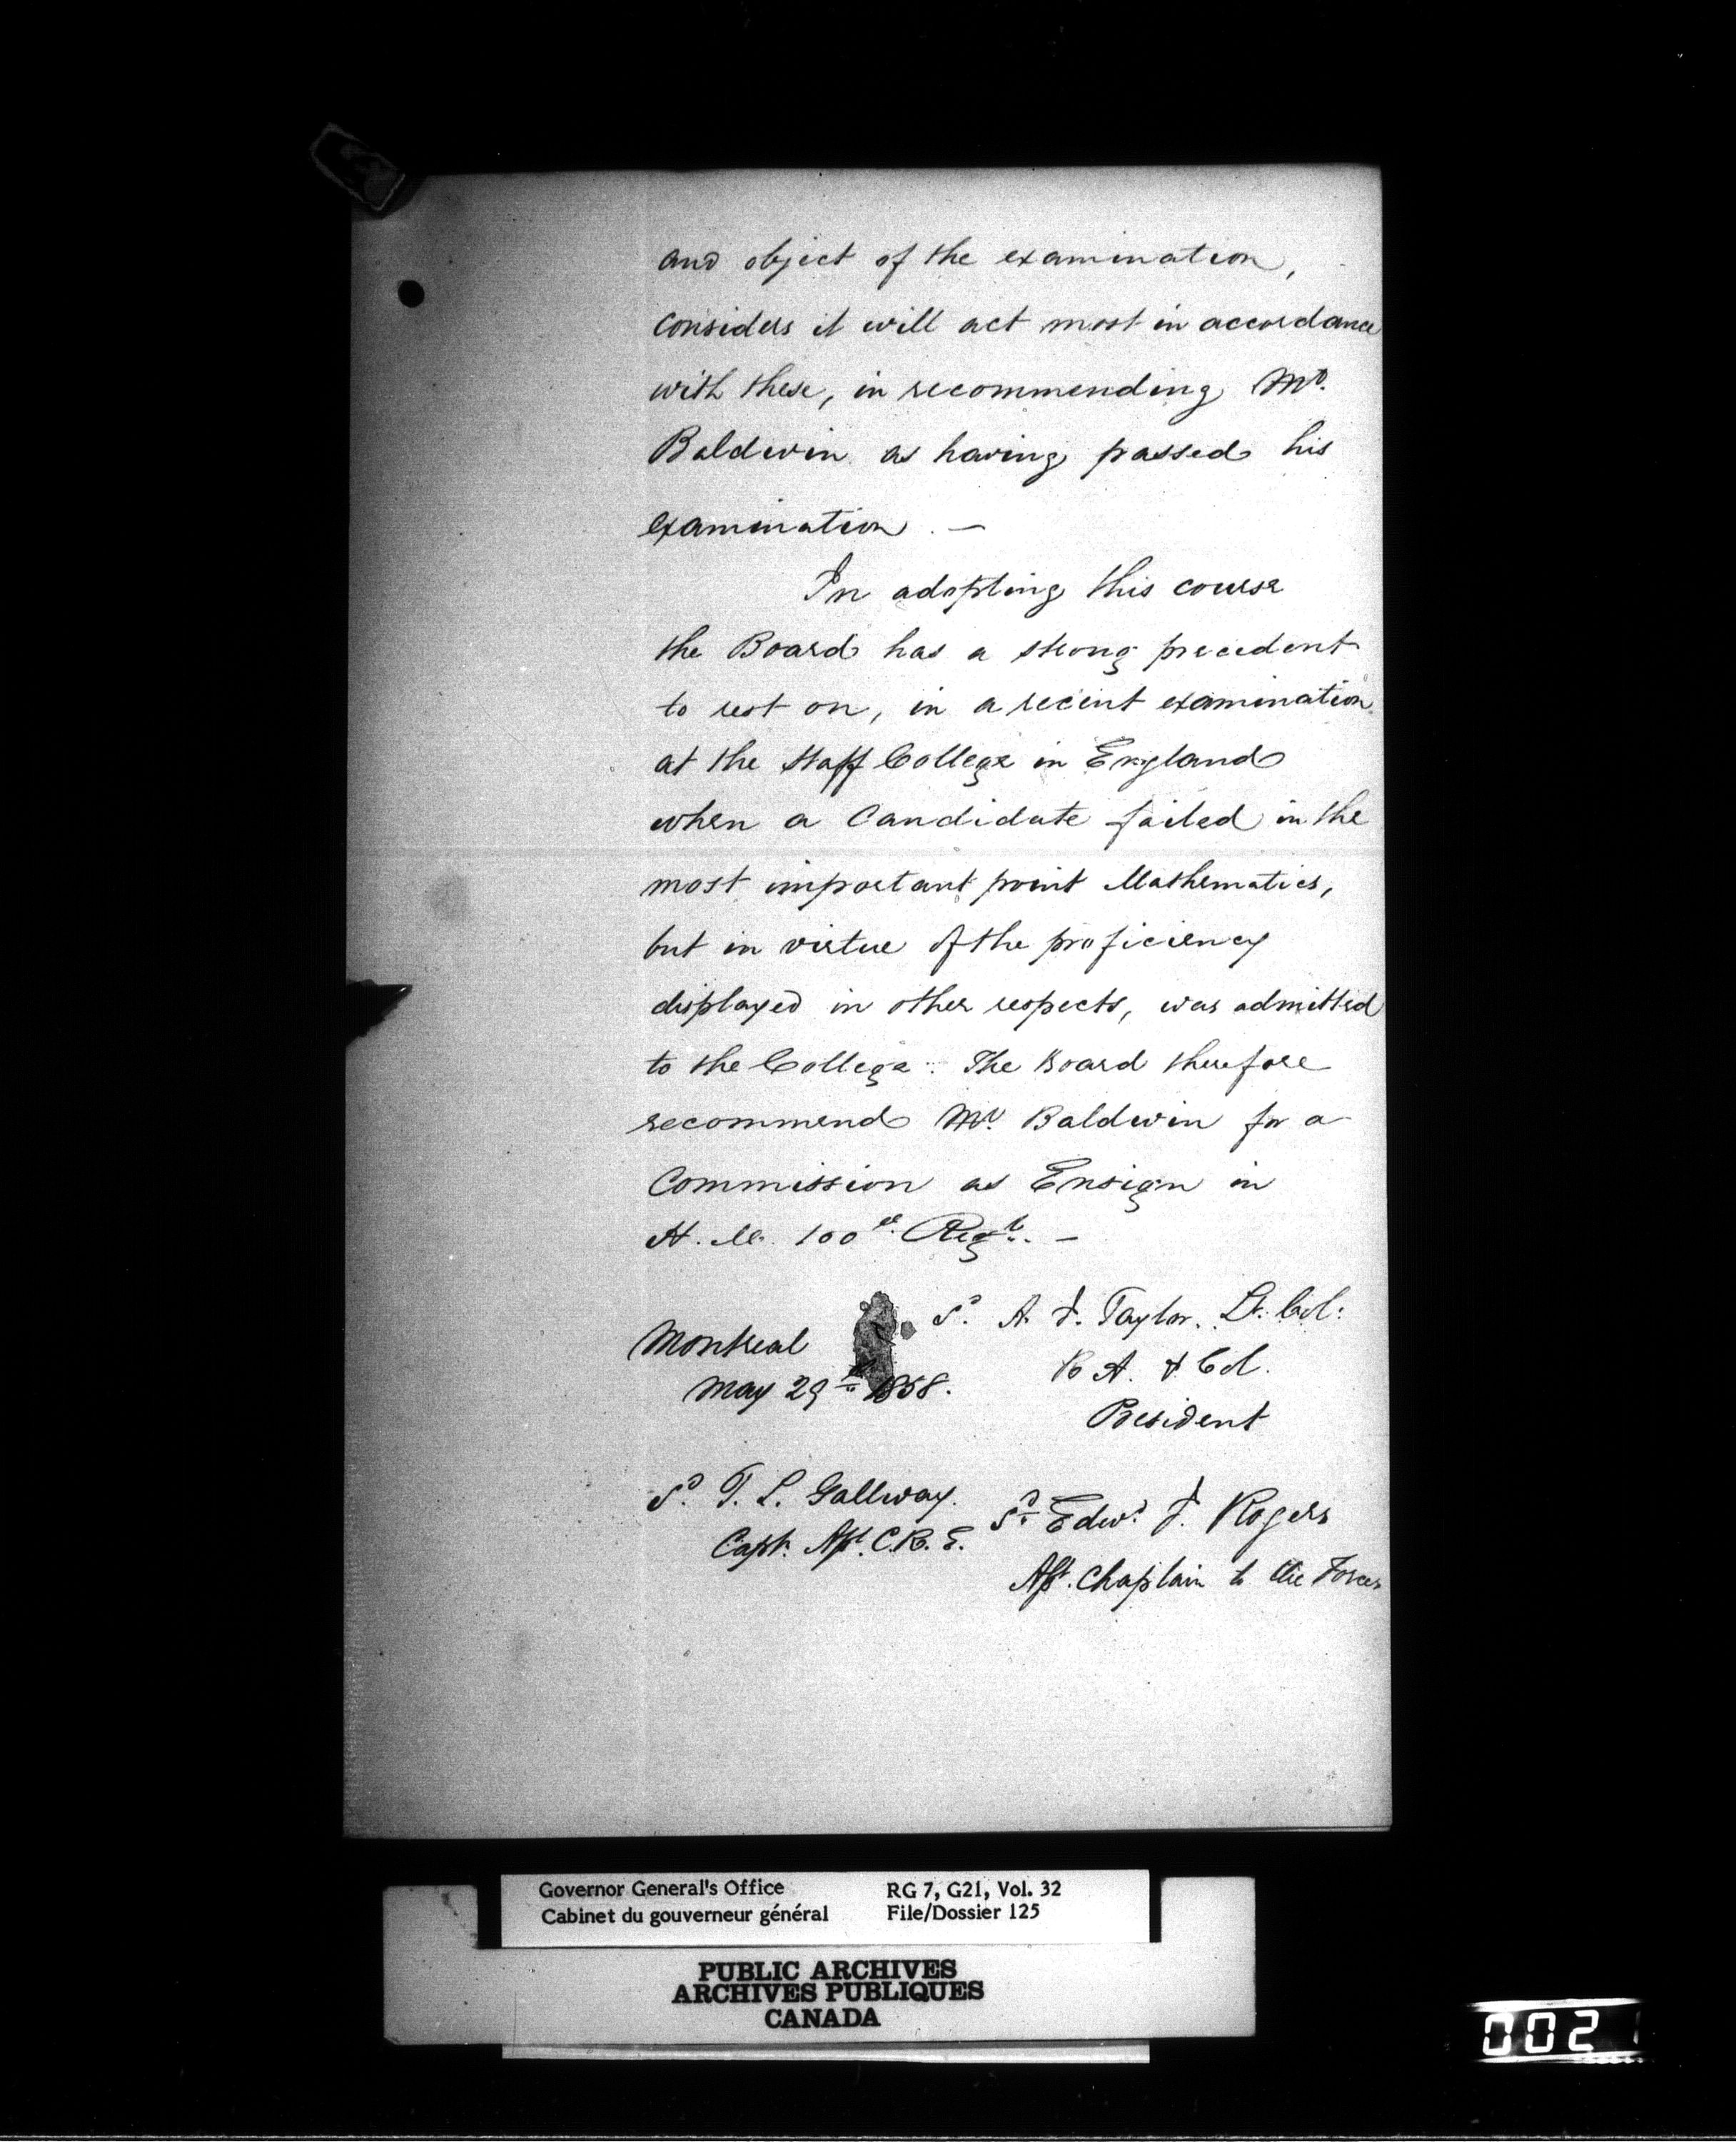 and object of the examination,
considers it will act most in accordance
with these, in recommending Mr.
Baldwin as having passed his
examination. —
In adopting this course
the Board has a strong precedent
to rest on, in a recent examination
at the Staff College in England
when a Candidate failed in the
most important point Mathematics,
but in virtue of the proficiency
displayed in other respects, was admitted
to the College. The Board therefore
recommend Mr. Baldwin for a
Commission as Ensign in
H. M. 100th Regt. —
Sd. A. J. Taylor. Lt. Col:
Montreal
R A. & Col.
May 29th 1858.
President
Sd. T. L. Gallwey.
Sd. Edwd. J. Rogers
Capt. Asst. C.R.E.
Asst. Chaplain to the Forces
Governor General's Office RG 7, G21, Vol. 32
Cabinet du gouverneur général File/Dossier 125
PUBLIC ARCHIVES
ARCHIVES PUBLIQUES
CANADA
002